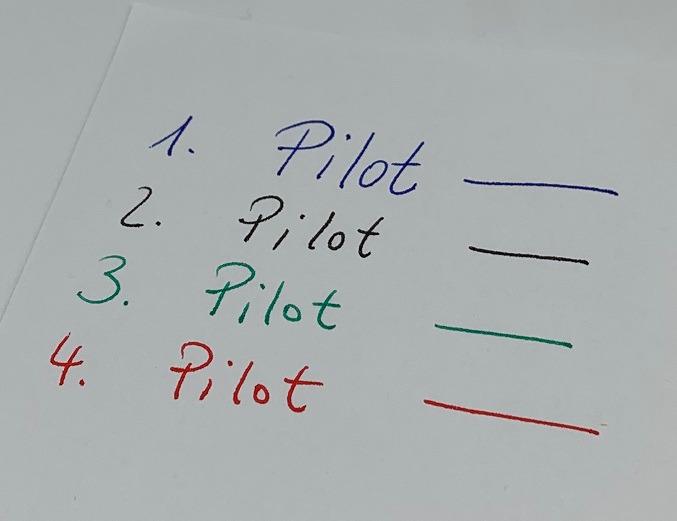 1. Pilot
2. Pilot
3. Pilot
4. Pilot